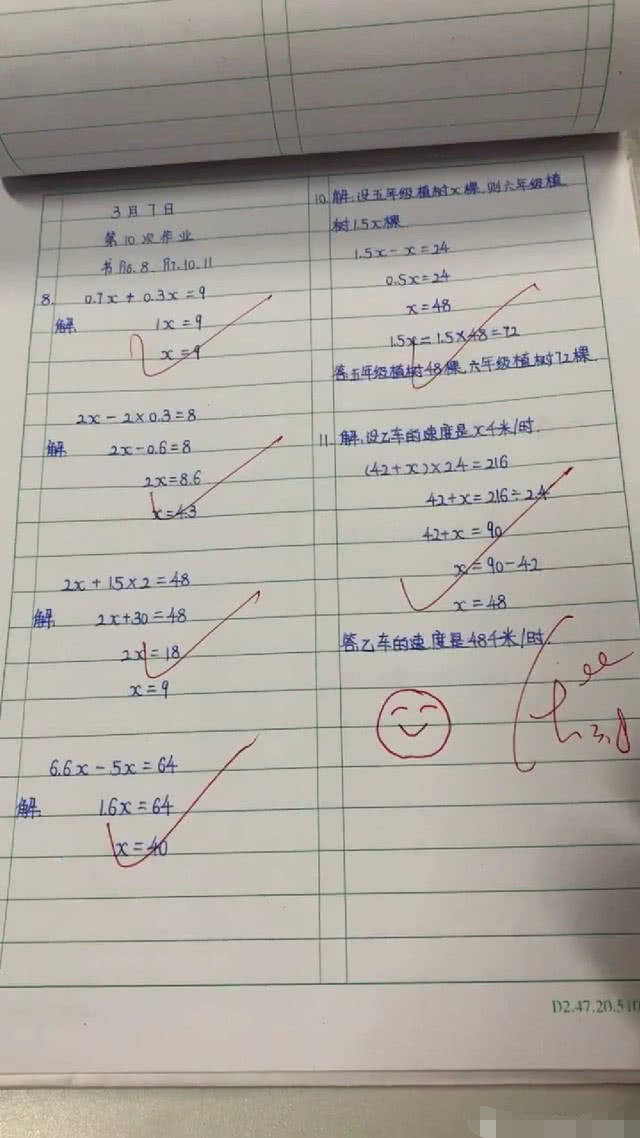 3月7日
第10次作业
书P6.8.P7.10.11
8. 0.7x+0.3x=9
解 1x=9
x=9
2x-2×0.3=8
解 2x-0.6=8
2x=8.6
x=4.3
2x+15×2=48
解 2x+30=48
2x=18
x=9
6.6x-5x=64
解 1.6x=64
x=40
10.解:设五年级植树x棵,则六年级植
树1.5x棵
1.5x-x=24
0.5x=24
x=48
1.5x=1.5×48=72
答:五年级植树48棵,六年级植树72棵
11.解:设乙车的速度是x千米/时.
(42+x)×2.4=216
42+x=216÷2.4
42+x=90
x=90-42
x=48
答:乙车的速度是48千米/时.
D2.47.20.510